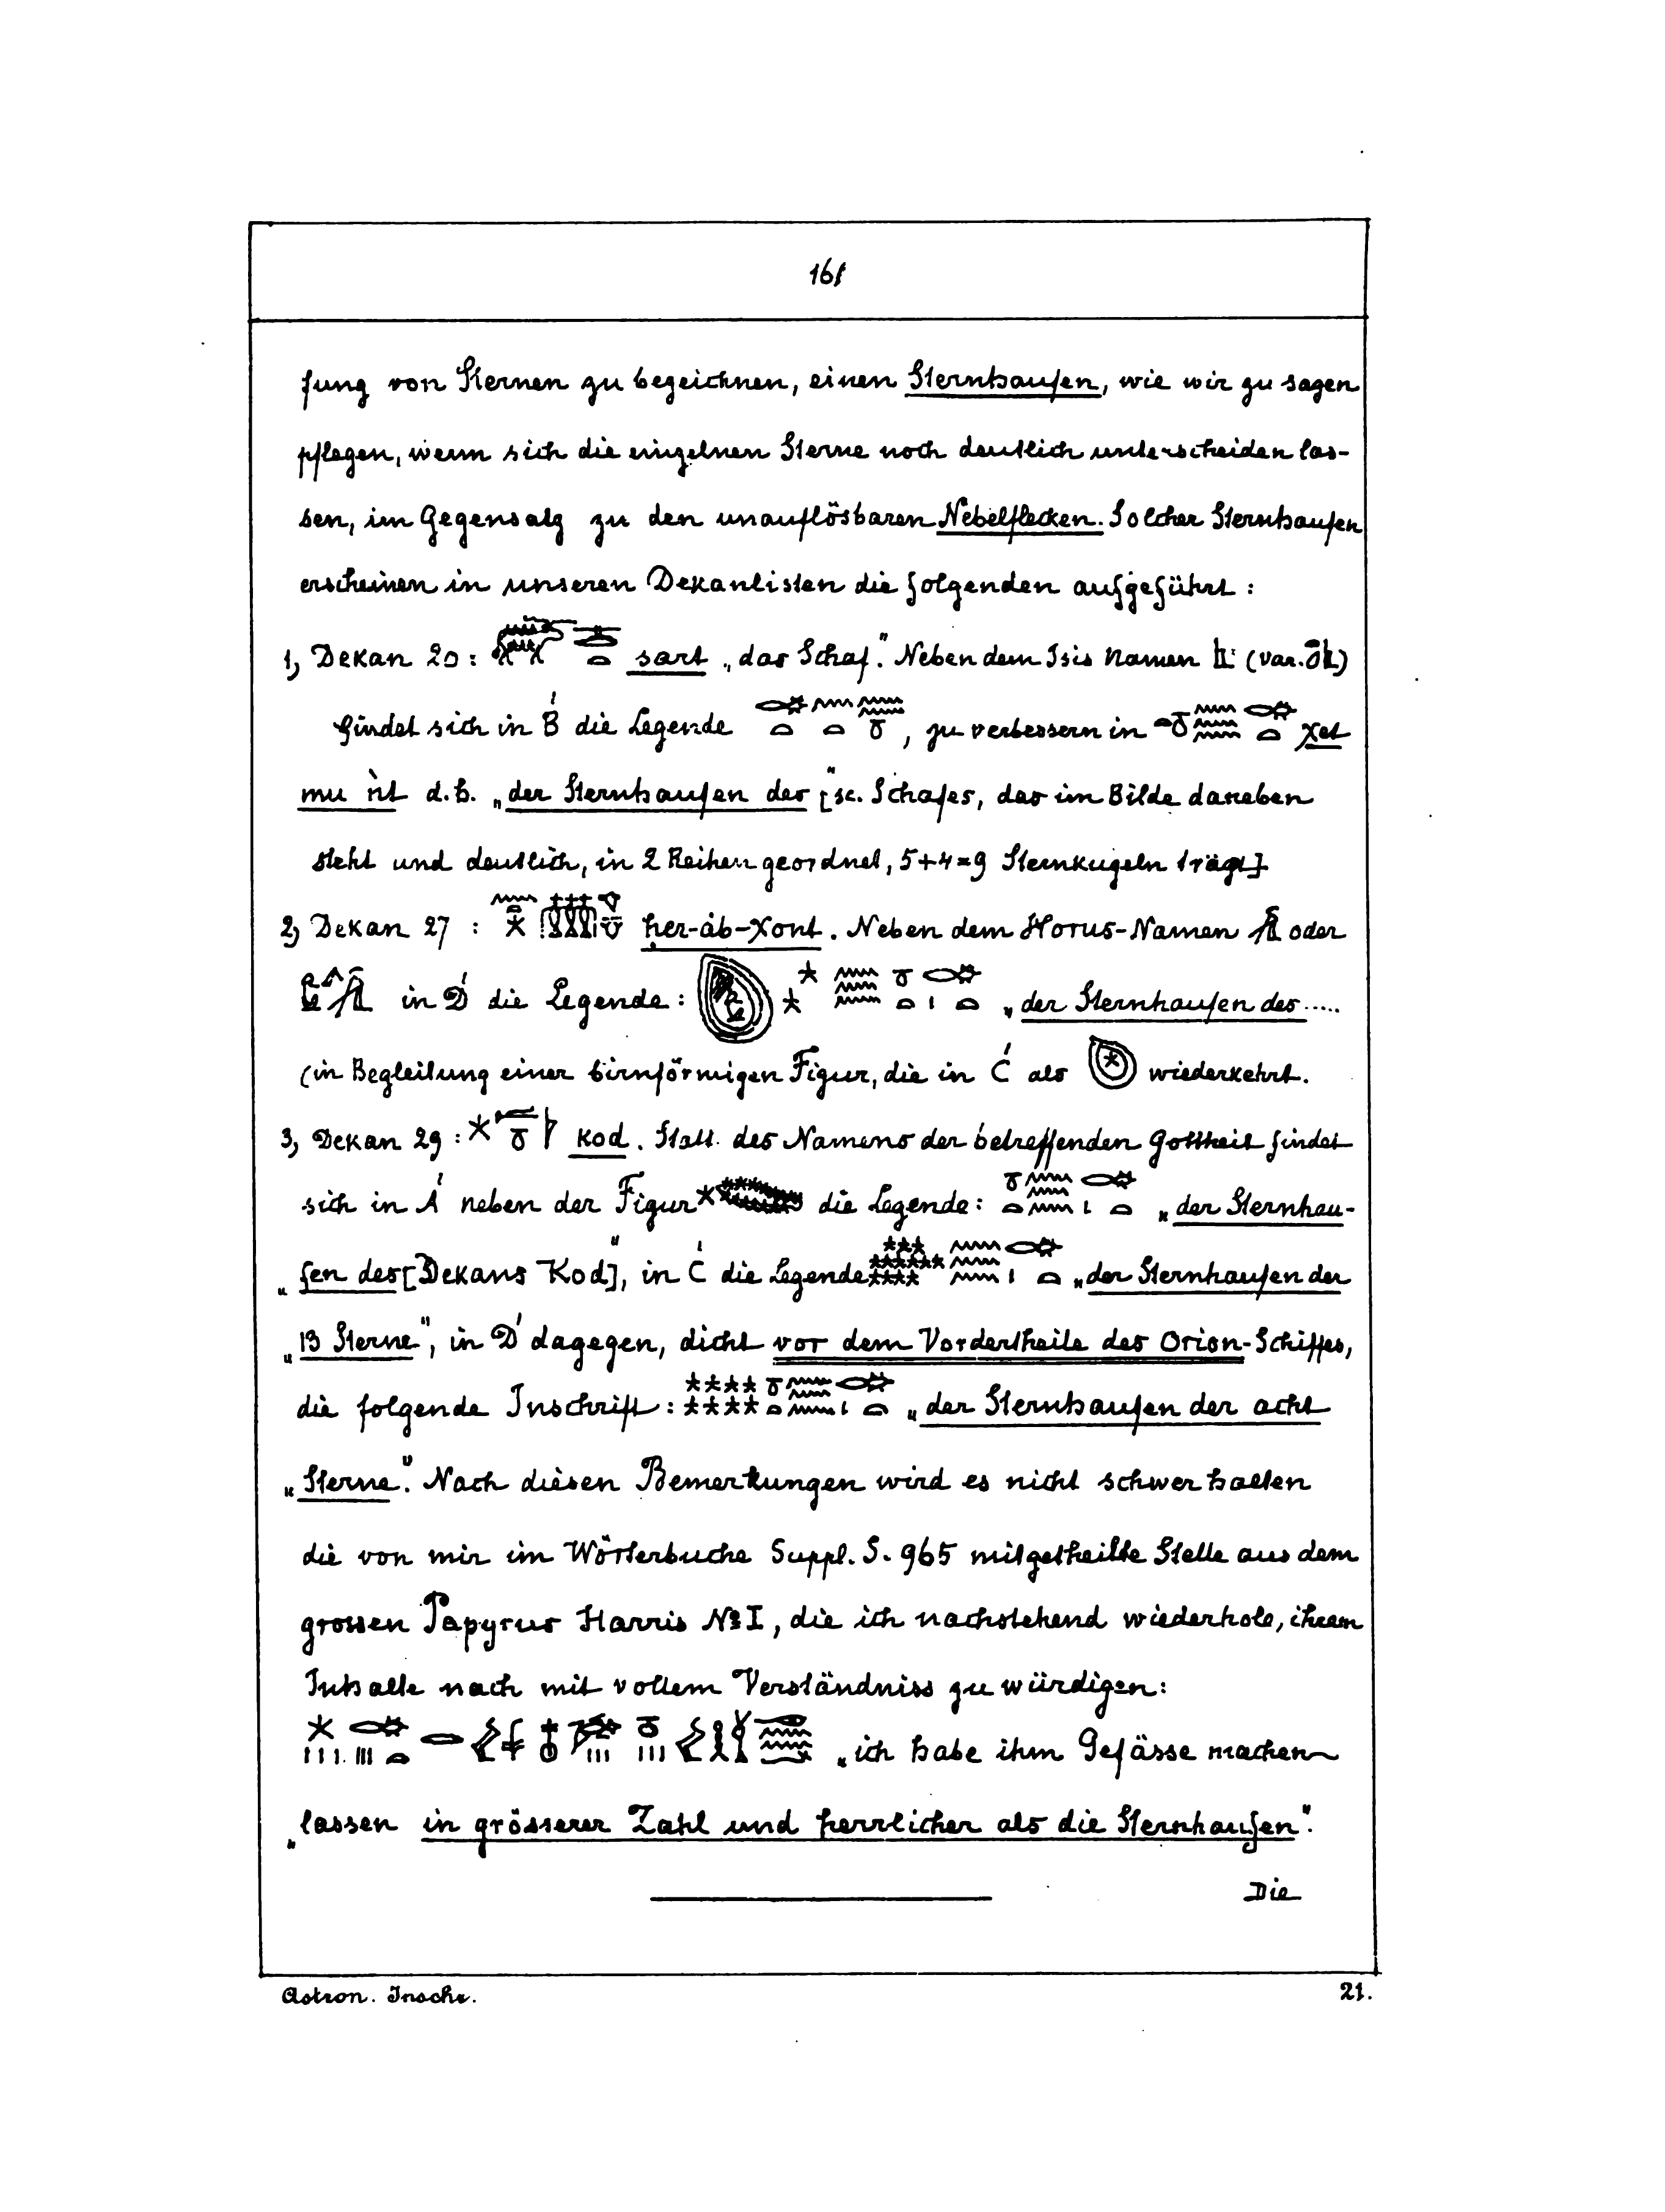 161
fung von Sternen zu bezeichnen, einen Sternhaufen, wie wir zu sagen
pflegen, wenn sich die einzelnen Sterne noch deutlich unterscheiden las-
sen, im Gegensatz zu den unauflösbaren Nebelflecken. Solcher Sternhaufen
erscheinen in unseren Dekanlisten die folgenden aufgeführt:
1, Dekan 20: sart „das Schaf". Neben dem Isis Namen (var. )
findet sich in B́ die Legende , zu verbessern in χet
mu ǹt d.h. „der Sternhaufen des" [sc. Schafes, das im Bilde daneben
steht und deutlich, in 2 Reihen geordnet, 5+4=9 Sternkugeln trägt]
2, Dekan 27: ḥer-àb-χont. Neben dem Horus-Namen oder
in D́ die Legende: „der Sternhaufen des .....
(in Begleitung einer birnförmigen Figur, die in Ć als wiederkehrt.
3, Dekan 29: kod. Statt des Namens der betreffenden Gottheit findet
sich in Á neben der Figur die Legende: „der Sternhau-
„fen des [Dekans Kod]", in Ć die Legende „der Sternhaufen der
„13 Sterne", in D́ dagegen, dicht vor dem Vordertheile des Orion-Schiffes,
die folgende Inschrift: „der Sternhaufen der acht
„Sterne". Nach diesen Bemerkungen wird es nicht schwer halten
die von mir im Wörterbuche Suppl. S. 965 mitgetheilte Stelle aus dem
grossen Papyrus Harris № I, die ich nachstehend wiederhole, ihrem
Inhalte nach mit vollem Verständniss zu würdigen:
„ich habe ihm Gefässe machen
„lassen in grösserer Zahl und herrlicher als die Sternhaufen".
Die
Astron. Inschr. 21.